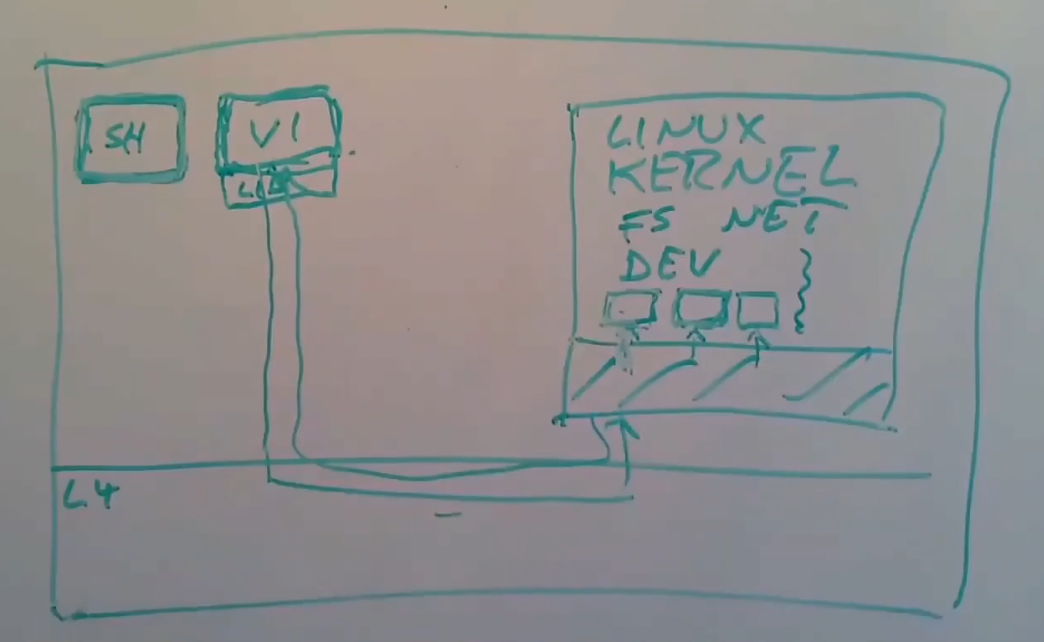 SH
VI
LINUX
KERNEL
FS NET
DEV
L4